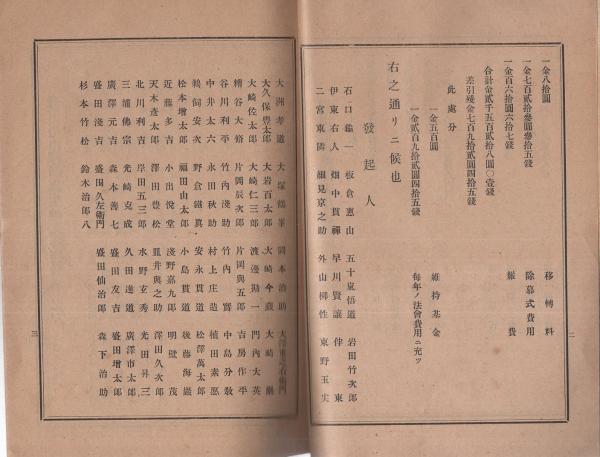 一金八拾圓 移轉料
一金七百貳拾參圓參拾五錢 除幕式費用
一金百六拾圓六拾七錢 雜費
合計金貳千五百貳拾八圓〇壹錢
差引殘金七百九拾貳圓四拾五錢
此處分
一金五百圓 維持基金
一金貳百九拾貳圓四拾五錢 每年ノ法會費用ニ充ツ
右之通リニ候也
發起人
石口龜一 板倉惠山 五十東悟道 岩田竹次郎
伊東右人 畑中貫禪 早川賢讓 伴東
二宮東隣 細見京之助 外山柳性 東野玉実
二
大洲孝道 大塚鶴峯 岡本治助
大久保豊太郎 大岩百太郎 大崎今藏 大崎巖
大崎佐太郎 大崎仁三郎 渡邊勘一 門內大英
糟谷大脩 片岡辰次郎 片岡與五郎 吉房作平
谷川利平 竹內淺助 竹內實 中島分敎
中井太六 永田秋助 村上庄造 植田素愿
鵜飼安次 野倉鐵眞 安永貫道 松澤萬太郎
松本增太郎 福田由太郎 小島貫道 後藤海巖
近藤多吉 小出悅堂 淺野嘉九郎 明壁茂
天木彥太郎 澤田豊松 皿井與之助 澤田久次郎
北川利吉 岸田五三郎 水野玄秀 光田昇三
三浦佛宗 光崎克成 久田達道 廣澤市太郎
廣澤元吉 森本善七 盛田友吉 盛田增太郎
盛田淺吉 盛田久左衞門 盛田仙治郎 森下治助
杉本竹松 鈴木治郎八
三